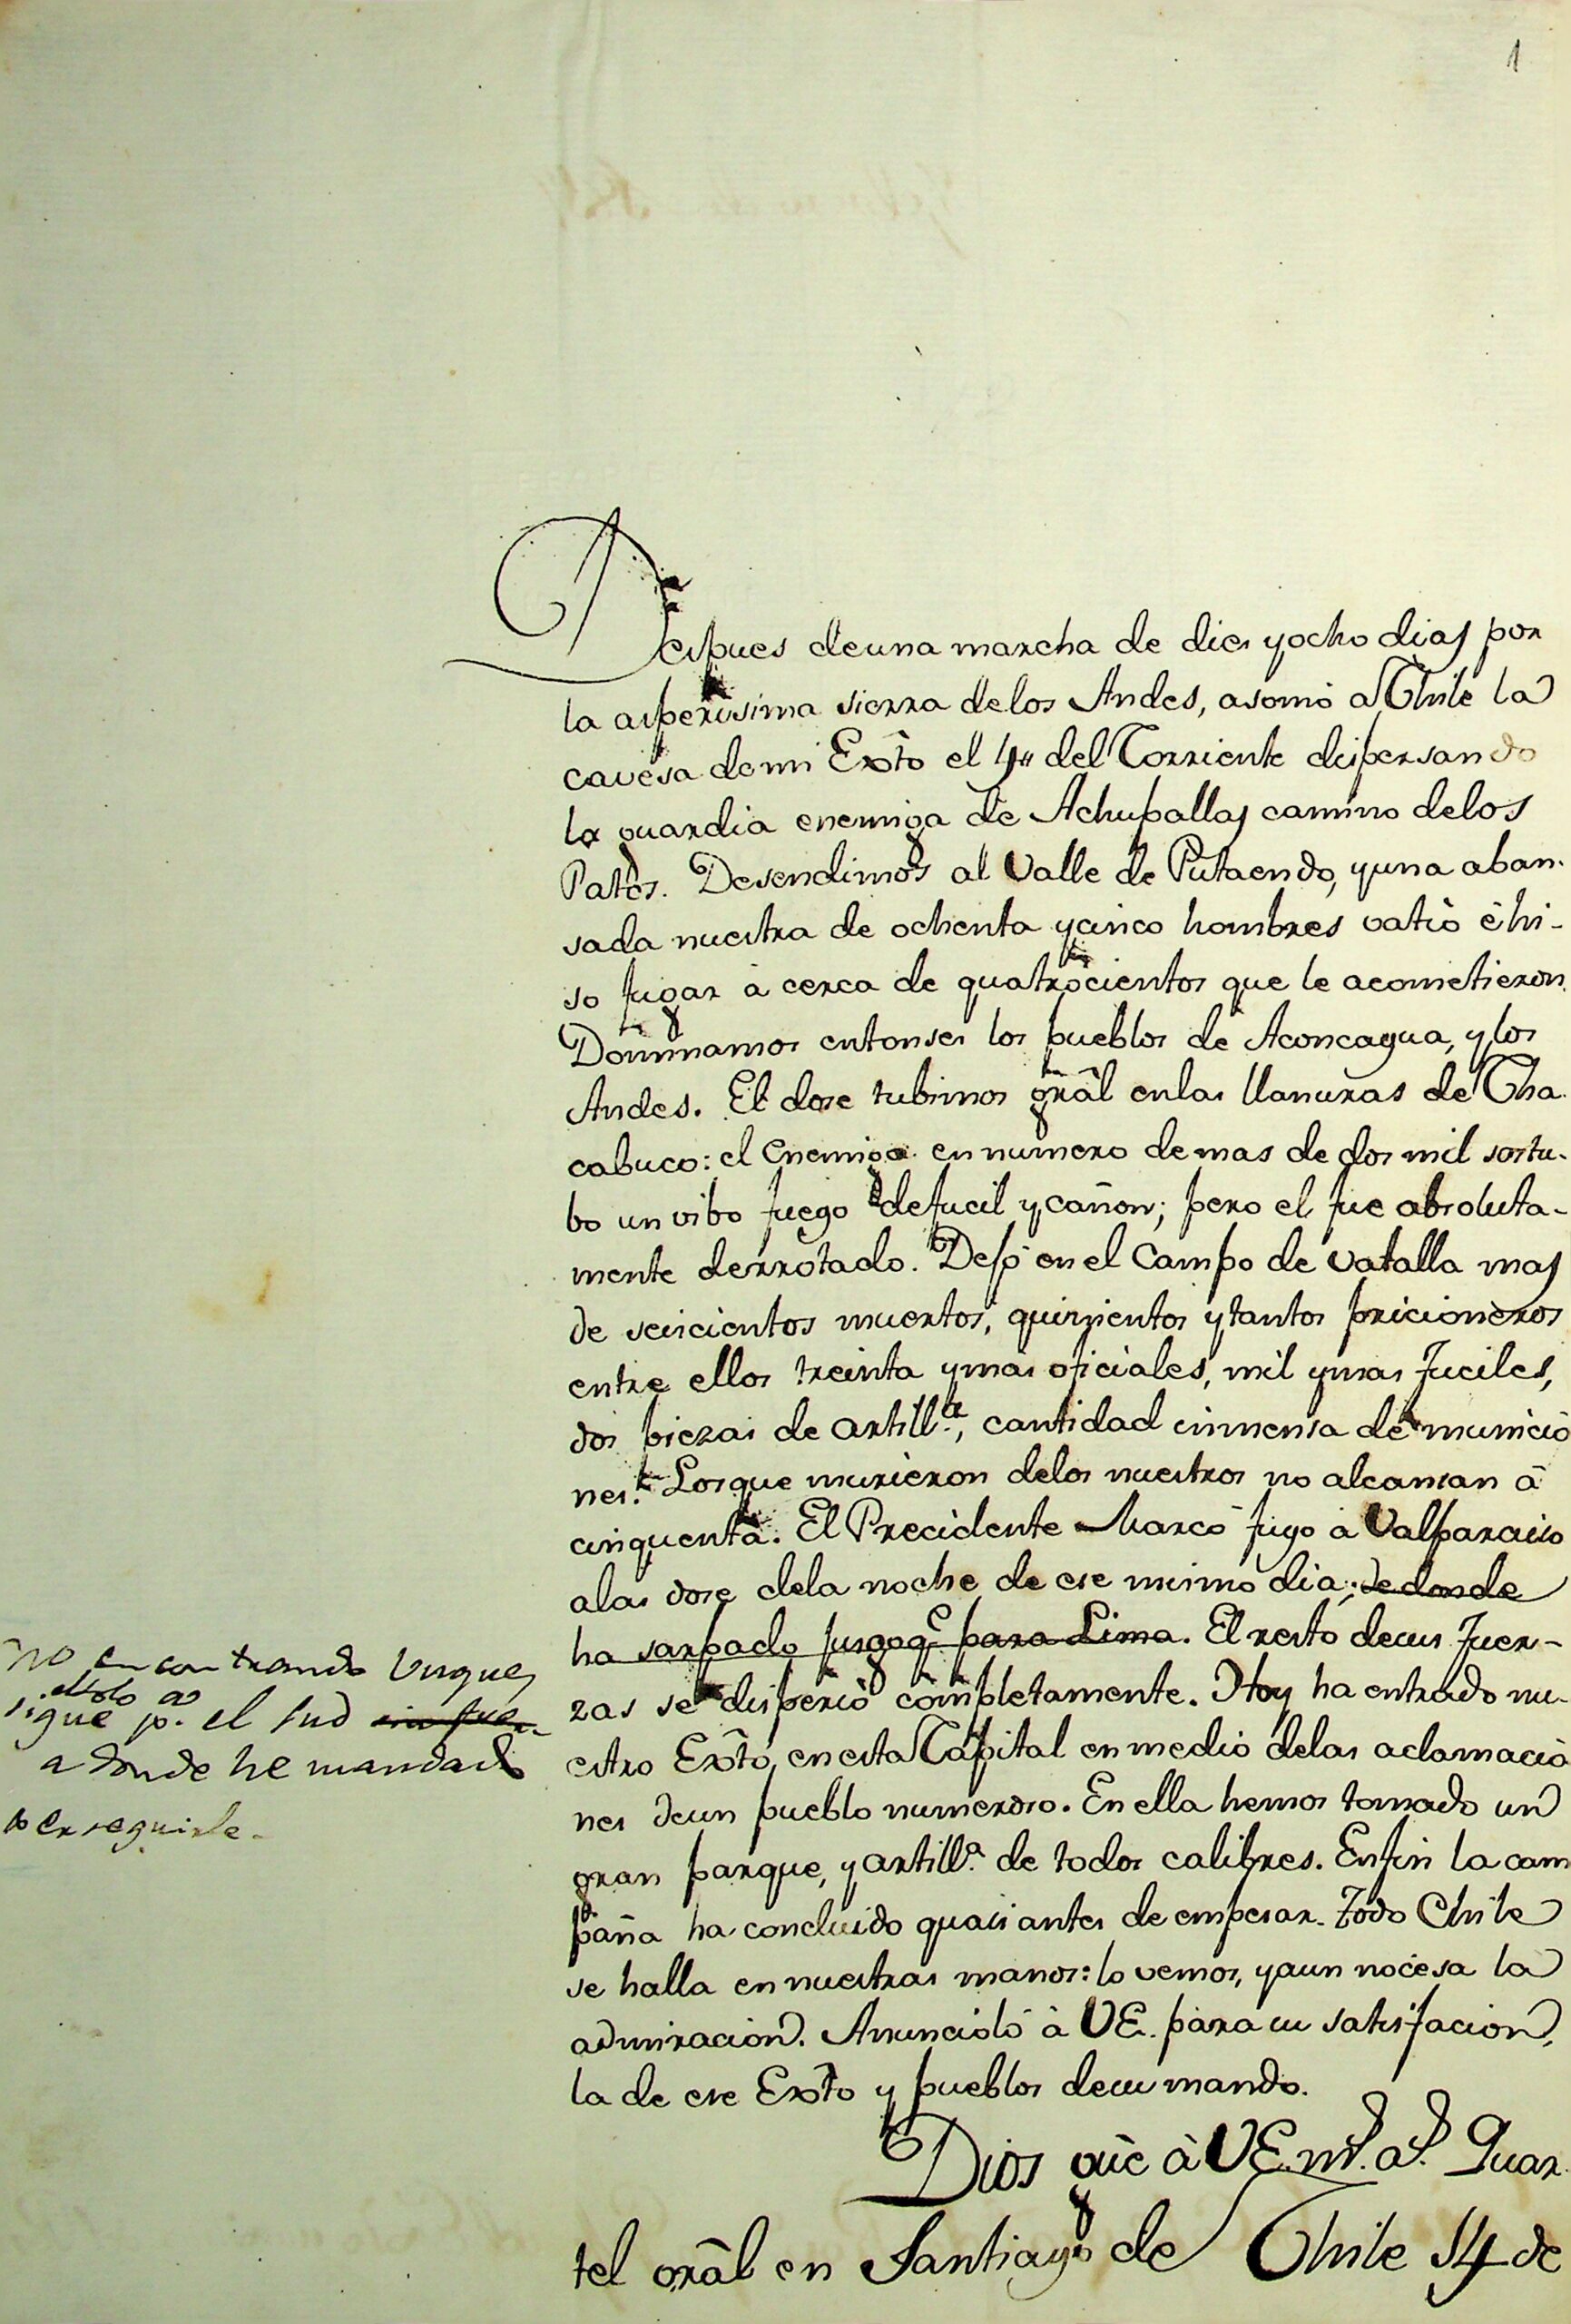 1
Despues deuna marcha de dies yocho dias por
la asperisima sierra delos Andes, asomó a Chile la
cavesa demi Exto el 4" del Corriente dispersando
la guardia enemiga de Achupallas camino delos
Patos. Desendimos al Valle de Putaendo, yuna aban-
sada nuestra de ochenta ycinco hombres vatió é hi-
so fugar á cerca de quatrocientos que le acometieron.
Dominamos entonses los pueblos de Aconcagua, y los
Andes. El dose tubimos gral enlas llanuras de Cha-
cabuco: el Enemigo en numero demas de dos mil sostu-
bo un vibo fuego defucil y cañon; pero el fue absoluta-
mente derrotado. Dejó en el Campo de vatalla mas
de seiscientos muertos, quinientos ytantos pricioneros
entre ellos treinta ymas oficiales, mil ymas fuciles,
dos piezas de artill.ª, cantidad inmensa de municio
nes. Losque murieron delos nuestros no alcansan á
cinquenta. El Precidente Marcó fugó á Valparaiso
alas dose dela noche de ese mismo dia; de donde
ha sarpado jusgoq.e para Lima. El resto desus fuer-
no encontrando buques
zas se disperso completamente. Hoy ha entrado nu-
el solo
sigue p.a el sud
estro Exto, enesta Capital en medio delas aclamacio
a donde he mandado
nes deun pueblo numeroso. En ella hemos tomado un
perseguirle.
gran parque, y artill.ª de todos calibres. Enfin la cam
paña ha concluido quasi antes de empesar. Todo Chile
se halla en nuestras manos: lo vemos, yaun nocesa la
admiracion. Anunciolo á VE. para su satisfacion,
la de ese Exto y pueblos desu mando.
Dios gûe á VE. m.s a.s Quar-
tel gral en Santiago de Chile 14 de